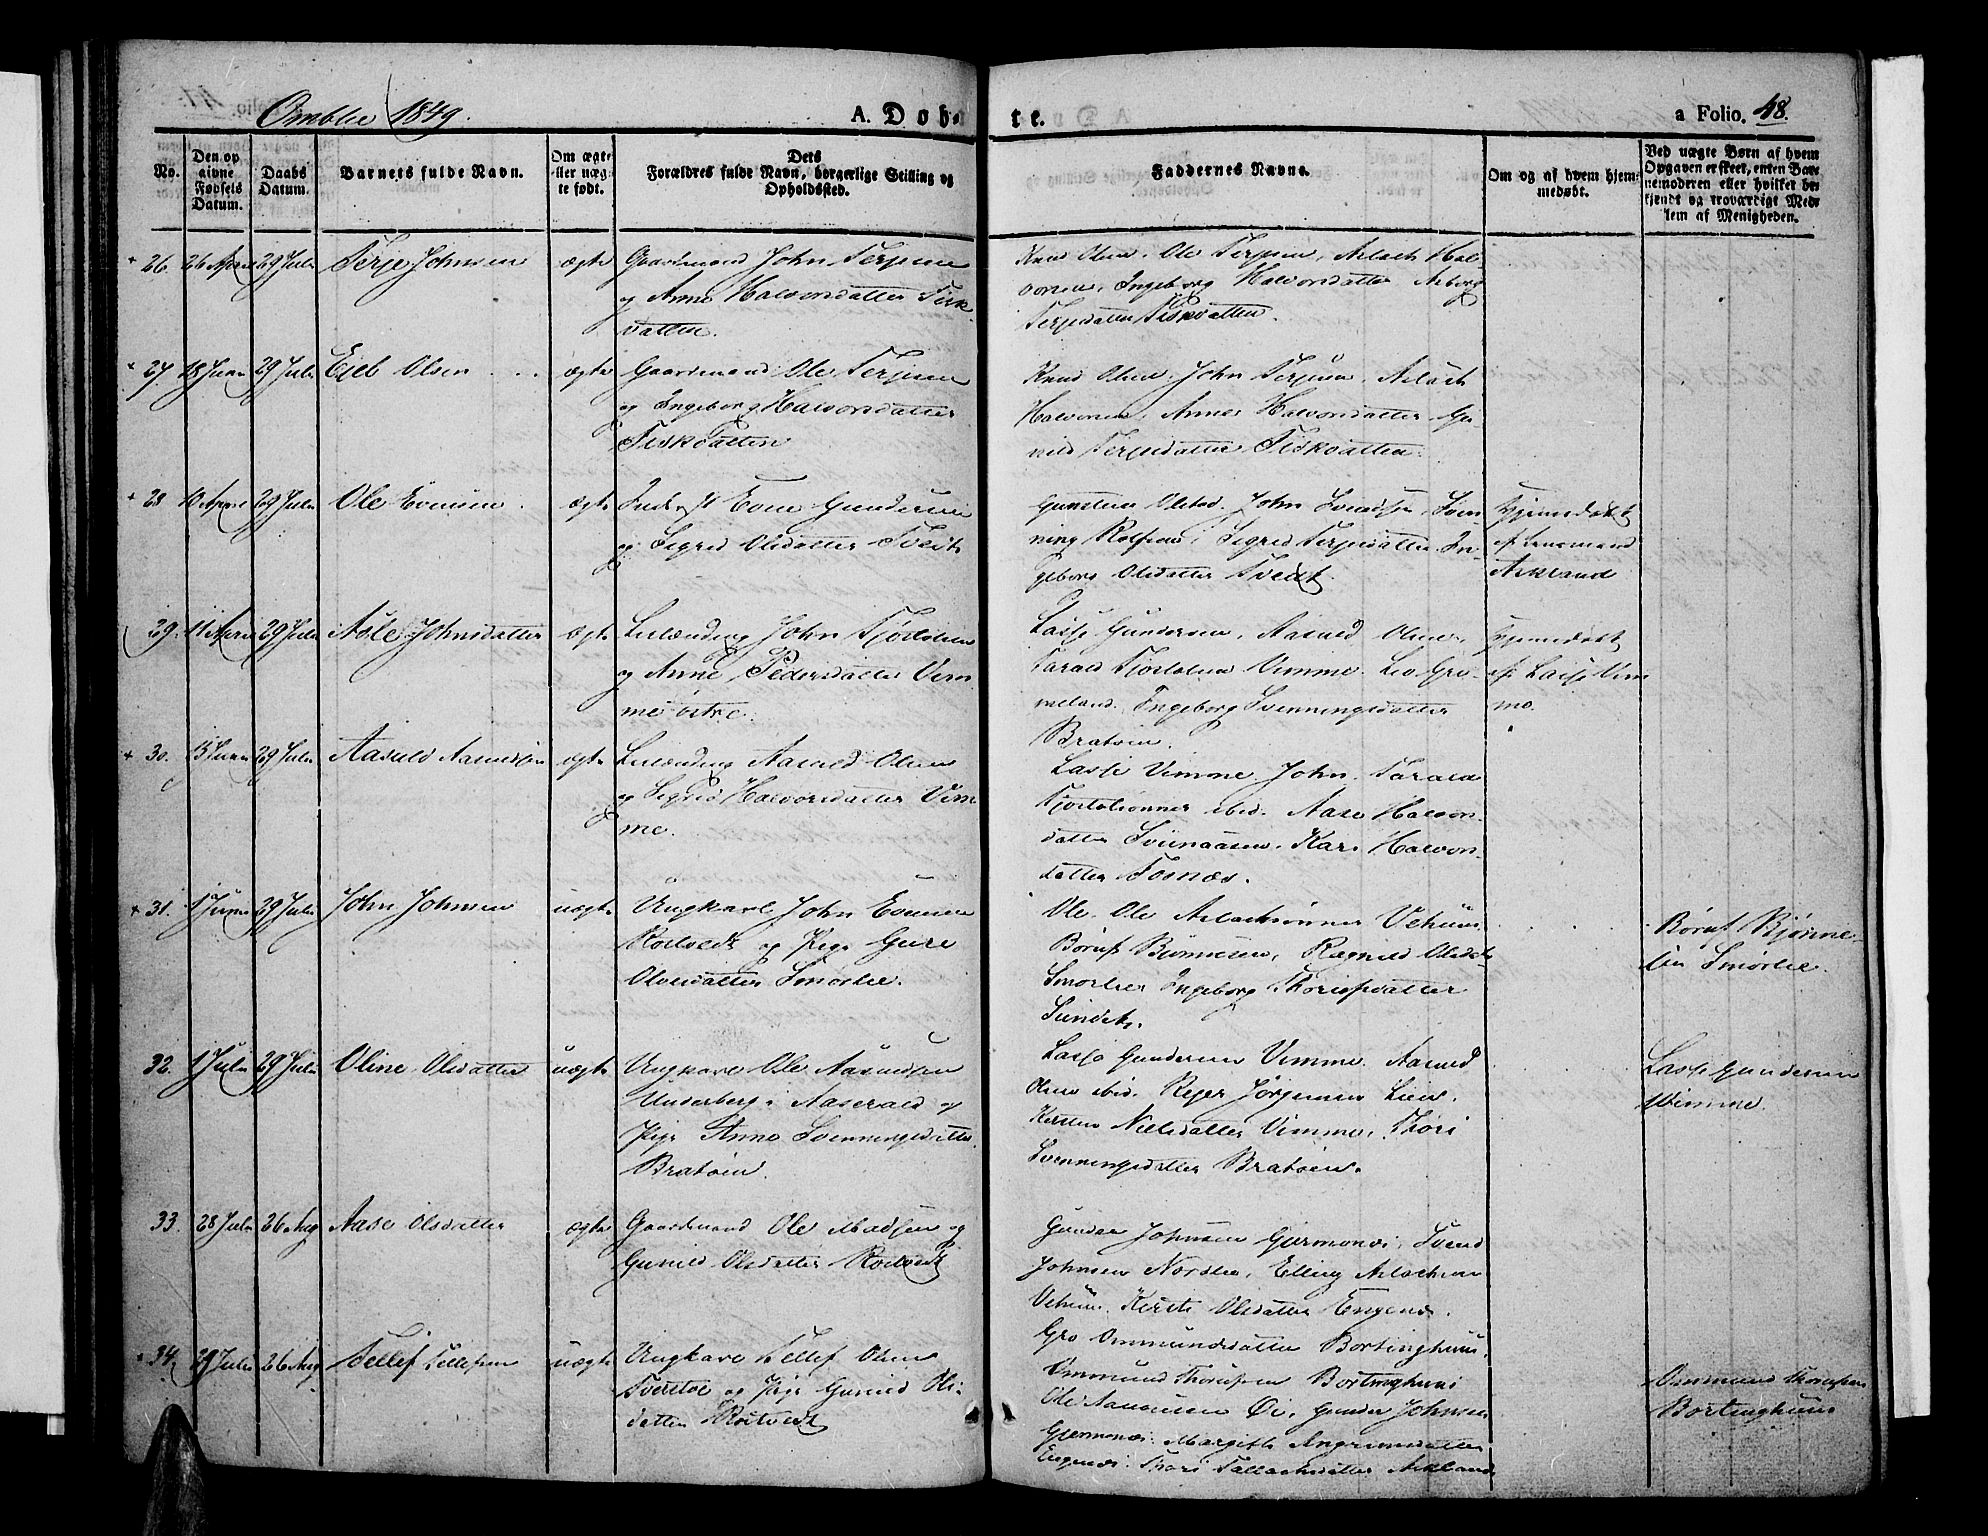 Omblie 1849.
A. Døb-
te.
a Folio. 48.
No.
Den op
givne
Fødsels
Datum.
Daabs
Datum.
Barnets fulde Navn.
Om ægte
eller uæg-
te født.
Dets
Forældres fulde Navn, borgerlige Stilling og
Opholdssted.
Faddernes Navne.
Om og af hvem hjem-
medøbt.
Ved uægte Børn af hvem
Opgaven er skeet, enten Bar-
nemoderen eller hvilket be-
kjendt og troværdigt Med-
lem af Menigheden.
26. 26 April 29 Juli Terje Johnsen ægte Gaardmand John Terjesen
og Anne Halvorsdatter Fisk-
vatten.
Knud Olsen. Ole Terjesen, Aslach Hal-
vorsen, Ingeborg Halvorsdatter Asborg
Terjesdatter Fiskvatten.
27. 18 Juni 29 Juli Ejeb Olsen ægte Gaardmand Ole Terjesen
og Ingeborg Halvorsdatter
Fiskvatten
Knud Olsen. John Terjesen. Aslach
Halvorsen. Anne Halvorsdatter Gu-
nild Terjesdatter Fiskvatten.
28 10 April 29 Juli Ole Evensen ægte Inderst Even Gundersen
og Sigrid Olsdatter Tveit
Gunsten Olstad. John Svendsen Sven-
ning Rolfsen, Sigrid Terjesdatter In-
geborg Olsdatter Tvedt.
Hjemmedøbt
af Lensmand
Askland
29. 11 April 29 Juli Asle Johnsdatter ægte Leilænding John Tjostolsen
og Anne Pedersdatter Vim-
me østre.
Lasse Gundersen, Aasmd Olsen,
Tarald Tjostolsen Vimme. Leo Gri-
meland. Ingeborg Svenningsdatter
Bratøen.
Hjemmedøbt
af Lasse Vim
me.
30. 13 Juni 29 Juli Aasuld Aasmdsen ægte Leilænding Aasmd Olsen
og Sigrid Halvorsdatter Vim
me.
Lasse Vimme. John. Tarald
Tjostolsønner ibid. Aase Halvors-
datter Svennaasen. Kari Halvors-
datter Fosnæs.
31. 1 Juni 29 Juli John Johnsen uægte Ungkarl John Evensen
Rostvedt og Pige Gure
Olsdatter Smørlie.
Ole. Ole Aslachsønner Vehuus
Børuf Bjønnesen, Ragnild Olsdat
Smørlie Ingeborg Thorjusdatter
Sundet.
Børuf Bjønne-
sen Smørlie.
32. 1 Juli 29 Juli Oline Olsdatter uægte Ungkarl Ole Aasmdsen
Underberg i Aaserald og
Pige Anne Svenningsdatter
Bratøen.
Lasse Gundersen Vimme. Aasmd
Olsen ibid. Rejer Jørgensen Lien.
Kirsten Nielsdatter Vimme, Thori
Svenningsdatter Bratøen.
Lasse Gundersen
Vimme.
33. 28 Juli 26 Aug Aase Olsdatter ægte Gaardmand Ole Madsen og
Gunild Olsdatter Rostvedt
Gunder Johnsen Gjermonds, Svend
Johnsen Nordlie, Elling Aslachsen
Vehuus. Kirsti Olsdatter Engenes.
Gro Ommundsdatter Bortinghuus.
34. 29 Juli 26 Aug Tellef Tellefsen uægte Ungkarl Tellef Olsen
Tverstøe og Pige Gunild Ols-
datter Rostvedt
Ommund Thorjussen Bortinghuus
Ole Aanonsen Øi, Gunder Johnsen
Gjermones. Margith Angrimsdatter
Engenes. Thori Tallachsdatter Askland
Ommund Thorjussen
Bortinghuus